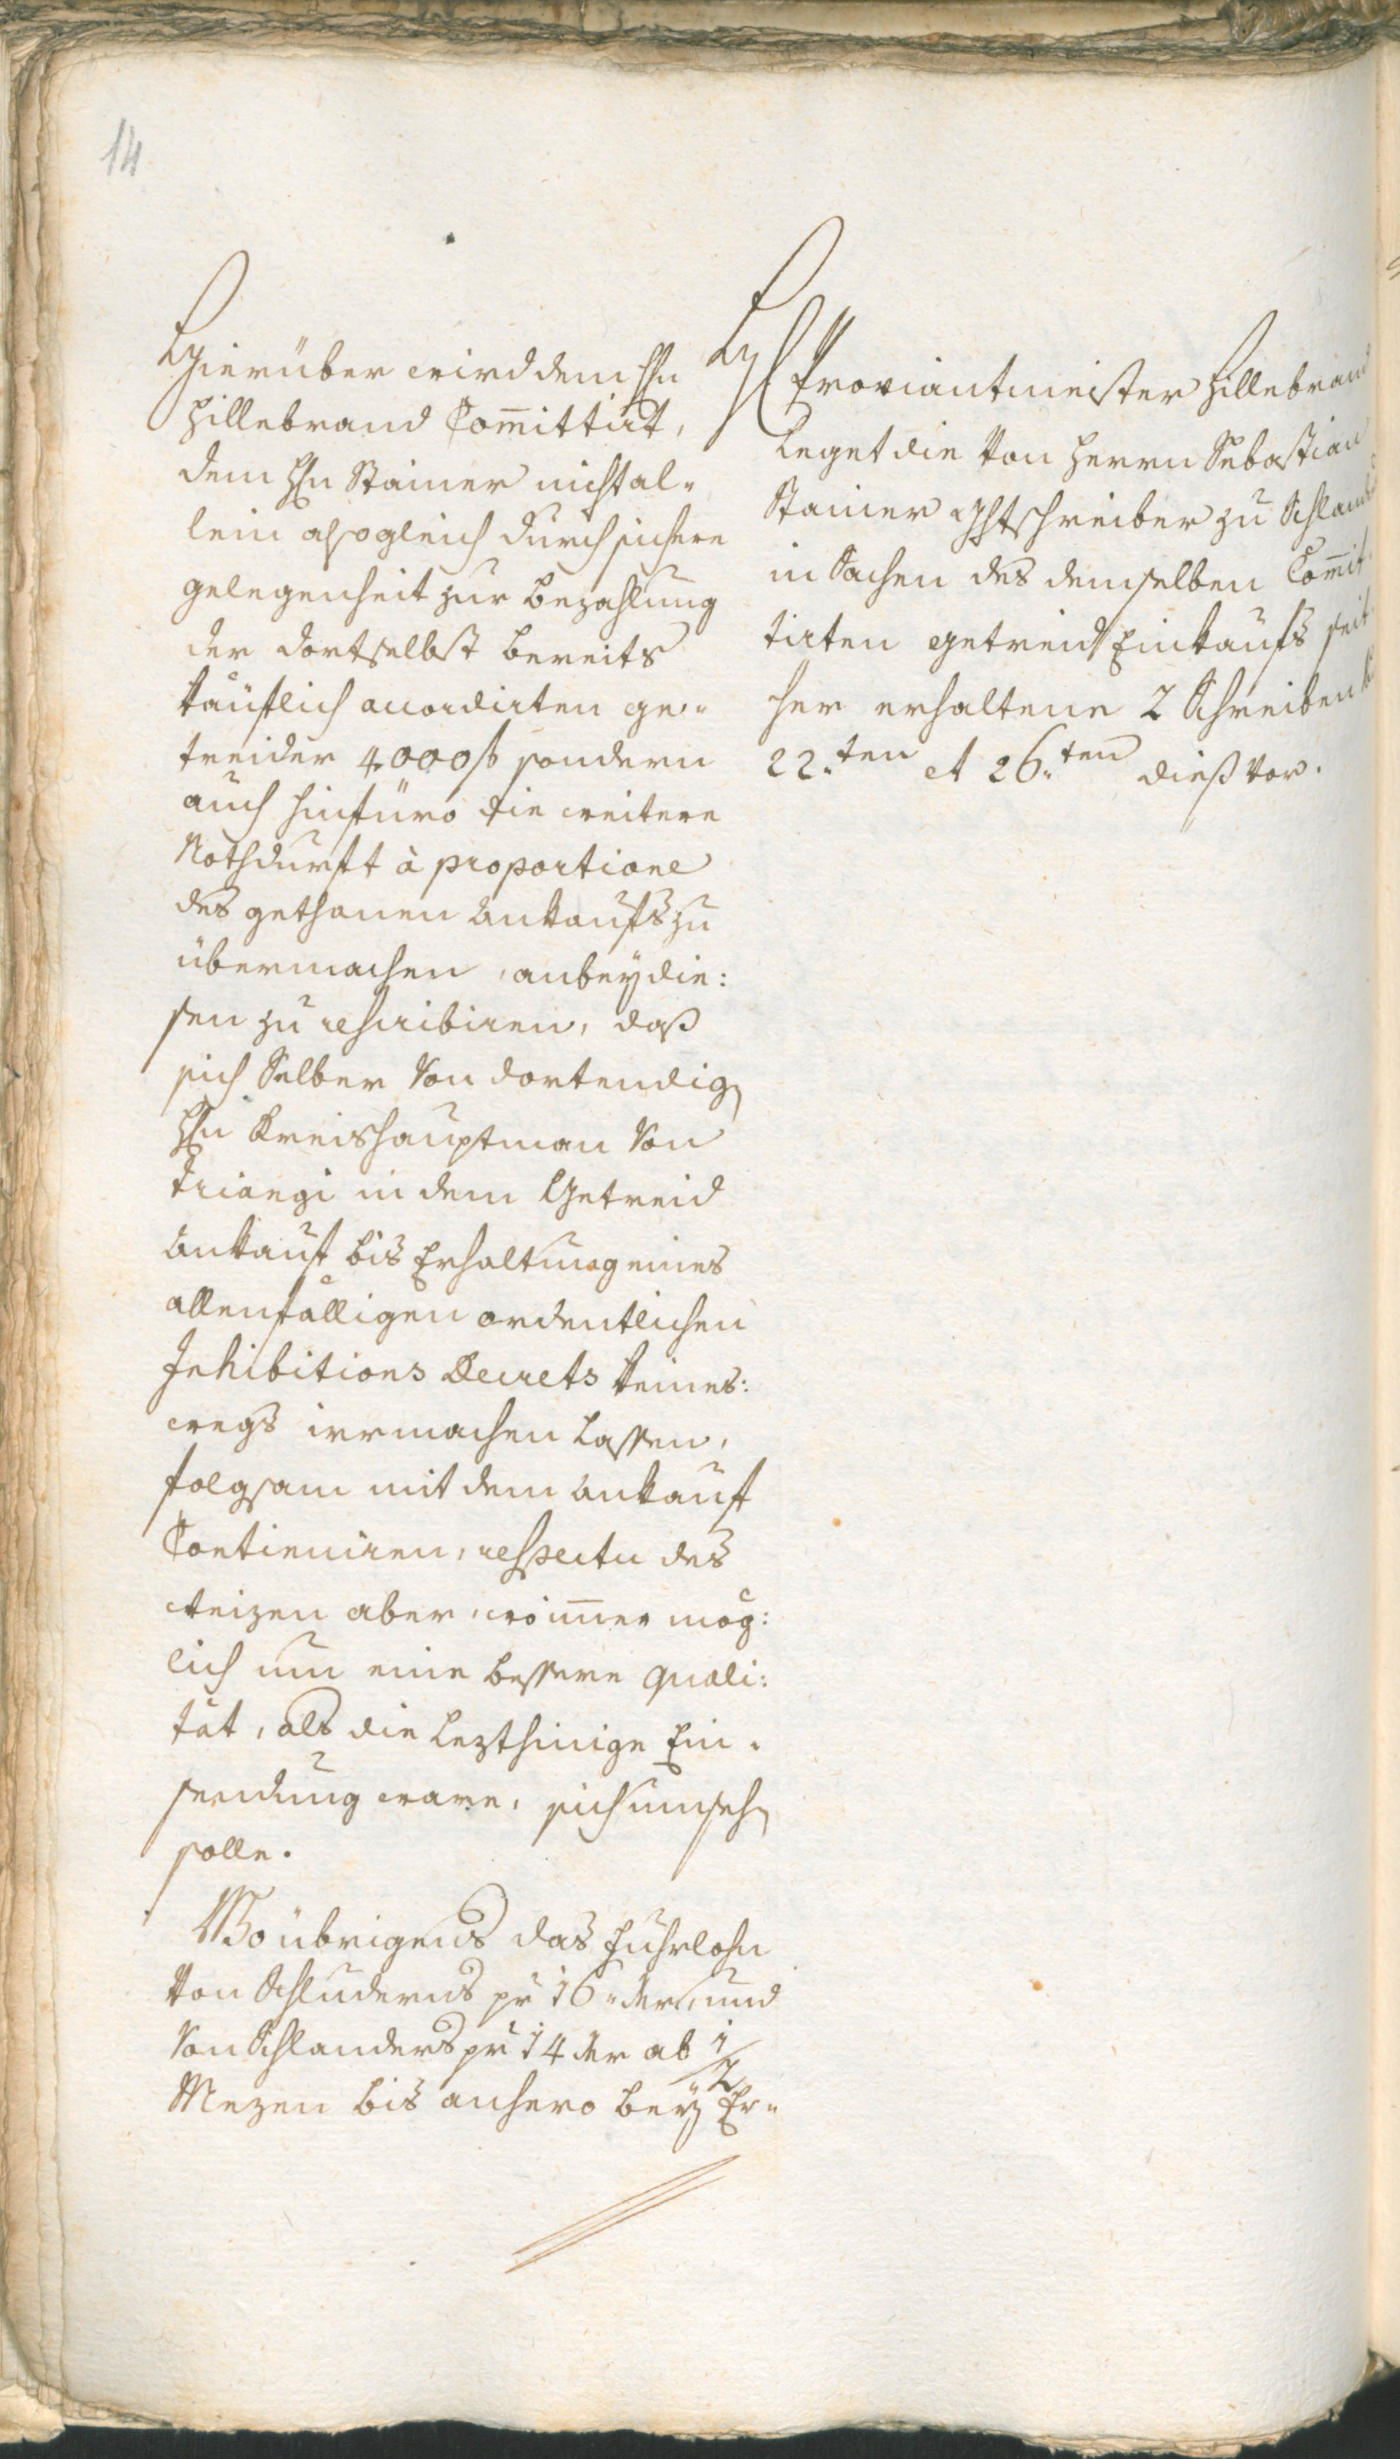 14
Hierüber wird dem Hln
Hillebrand Com̄ittirt,
dem Hln Stainer nicht al-
lein alsogleich durch sichere
gelegenheit zur Bezahlung
der dortselbst bereits
käuflich accordirten ge-
treider 4000 f sondern
auch hinfüro die weitere
Nothdurft à proportione
des gethanen Ankaufs zu
übermachen, anbey die:
sen zu rescribiren, daß
sich Selber von dortendig
Hln Kreishauptman von
Triangi in dem Getreid
Ankauf bis Erhaltung eines
allenfälligen ordentlichen
Inhibitions Decrets keines:
wegs irrmachen lassen,
folgsam mit dem Ankauf
Continuiren, respectu des
Weizen aber, wo im̄er mög:
lich um eine bessere Quali:
tät, als die lezthinige Ein-
sendung ware, sich umseh
solle.
Wo übrigens das Fuhrlohn
von Schluderns pr 16 Xer, und
von Schlanders pr 14 Xer ab 1/2
Mezen bis anhero bey Er-
H Proviantmeister Hillebrand
Leget die von Herrn Sebastian
Stainer Ghtschreiber zu Schland
in Sachen des demselben Com̄it
tirten getreid Einkaufs seit
her erhaltene 2 Schreiben
22.ten et 26.ten dieß vor.